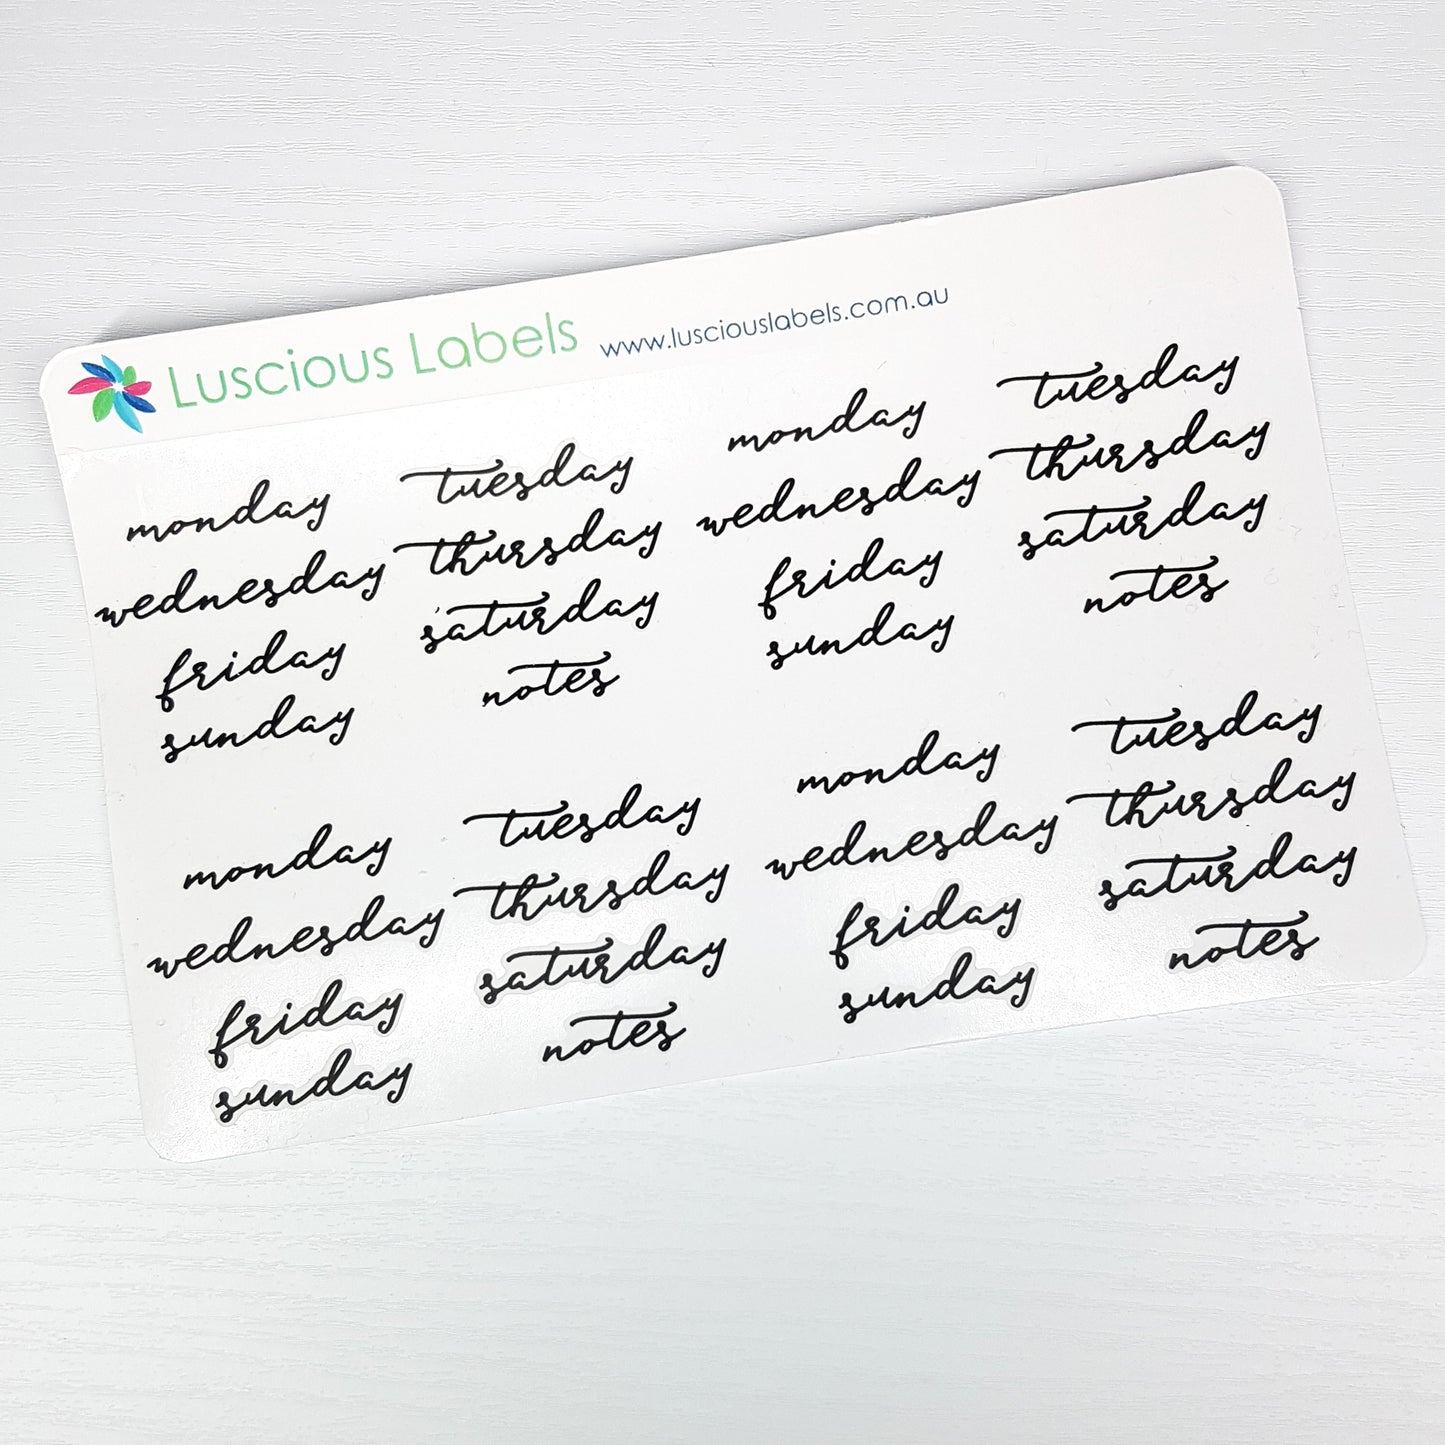 Luscious Labels www.lusciouslabels.com.au
monday tuesday
wednesday thursday
friday saturday
sunday notes
monday tuesday
wednesday thursday
friday saturday
sunday notes
monday tuesday
wednesday thursday
friday saturday
sunday notes
monday tuesday
wednesday thursday
friday saturday
sunday notes